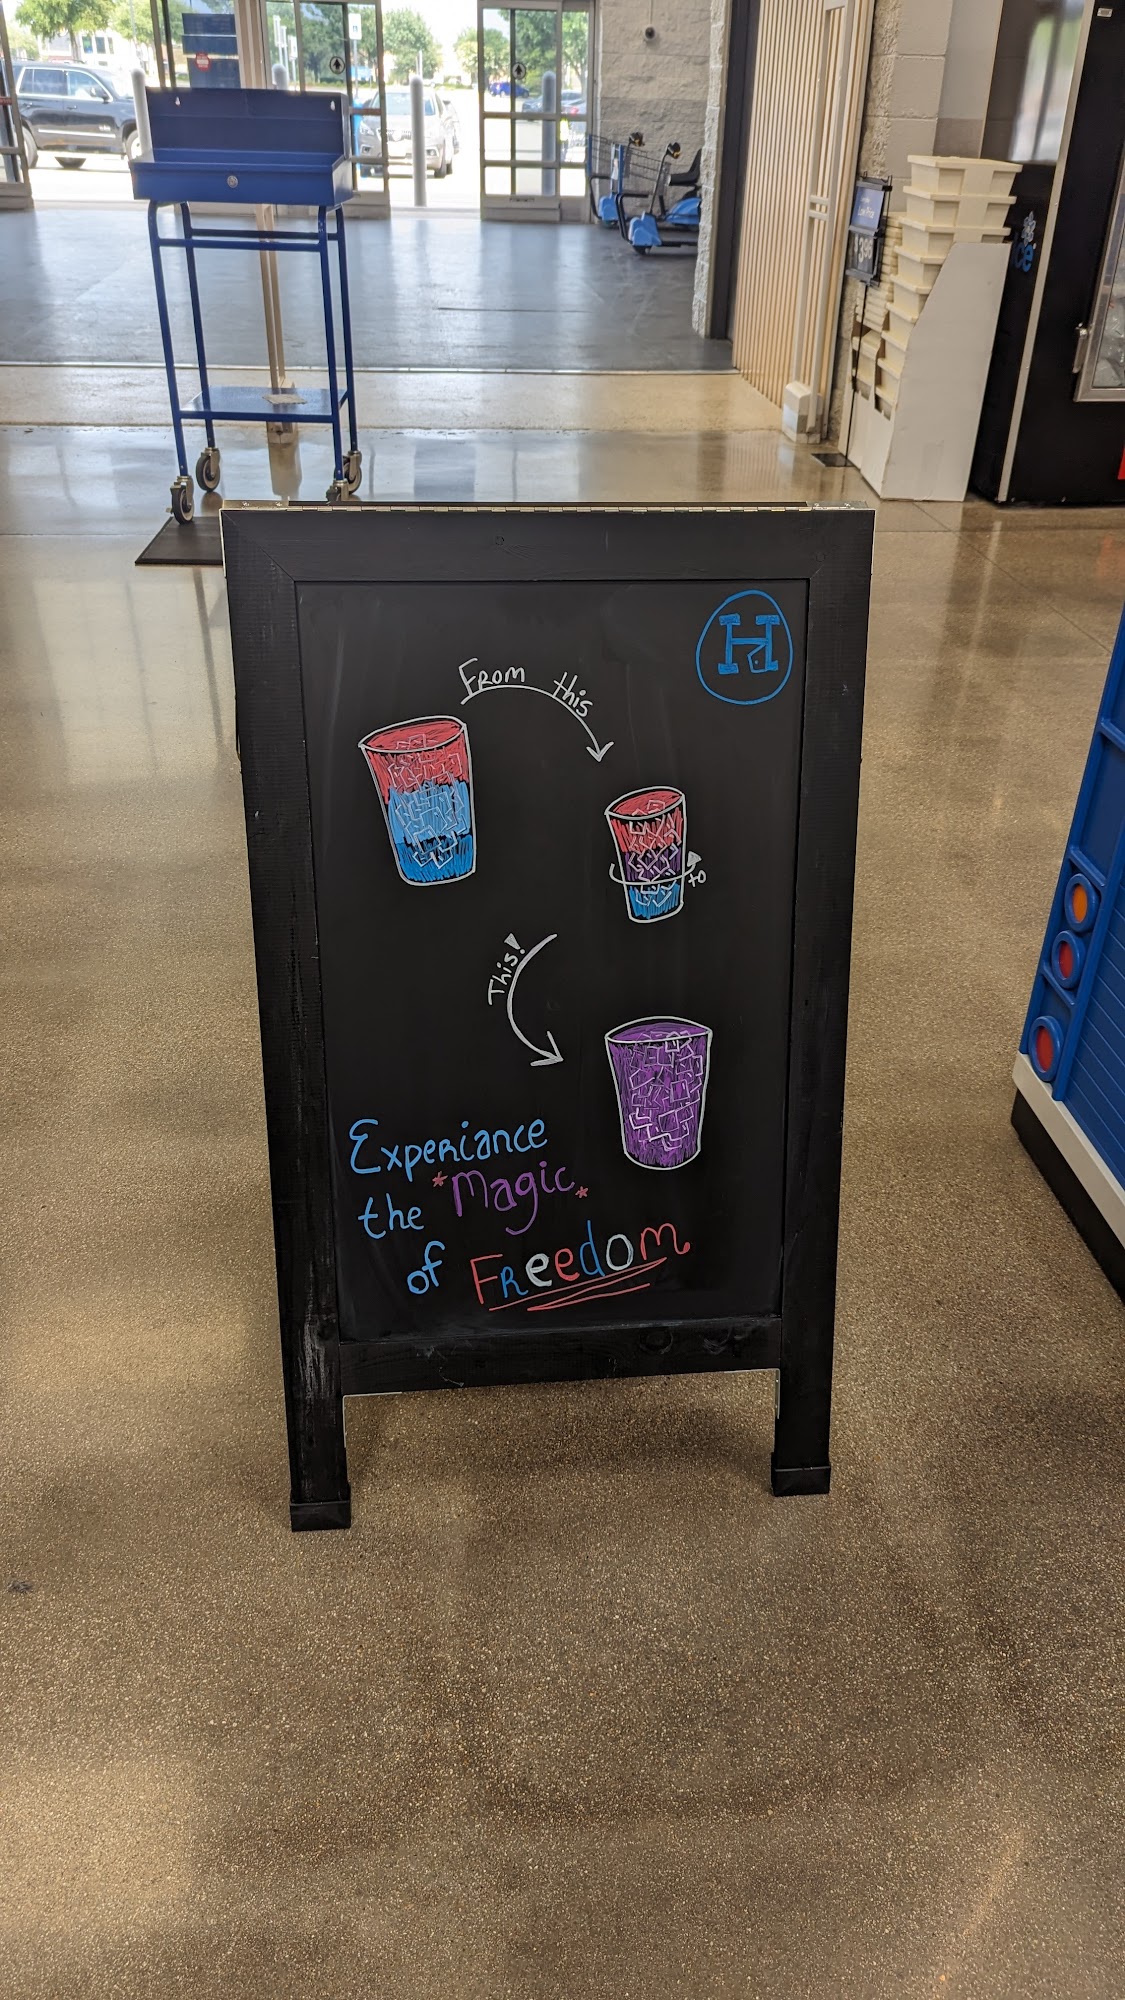 H
From this
to
This!
Experiance
the *Magic*
of Freedom
Low Price
ce